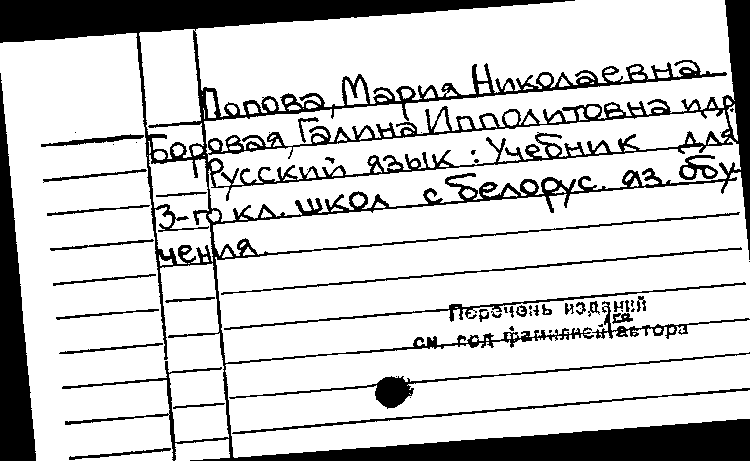 Попова, Мария Николаевна.
Боровая, Галина Ипполитовна и др
Русский язык: Учебник для
3-го кл. школ с белорус. яз. обу-
чения.
Перечень изданий
см. под фамилией 1го автора